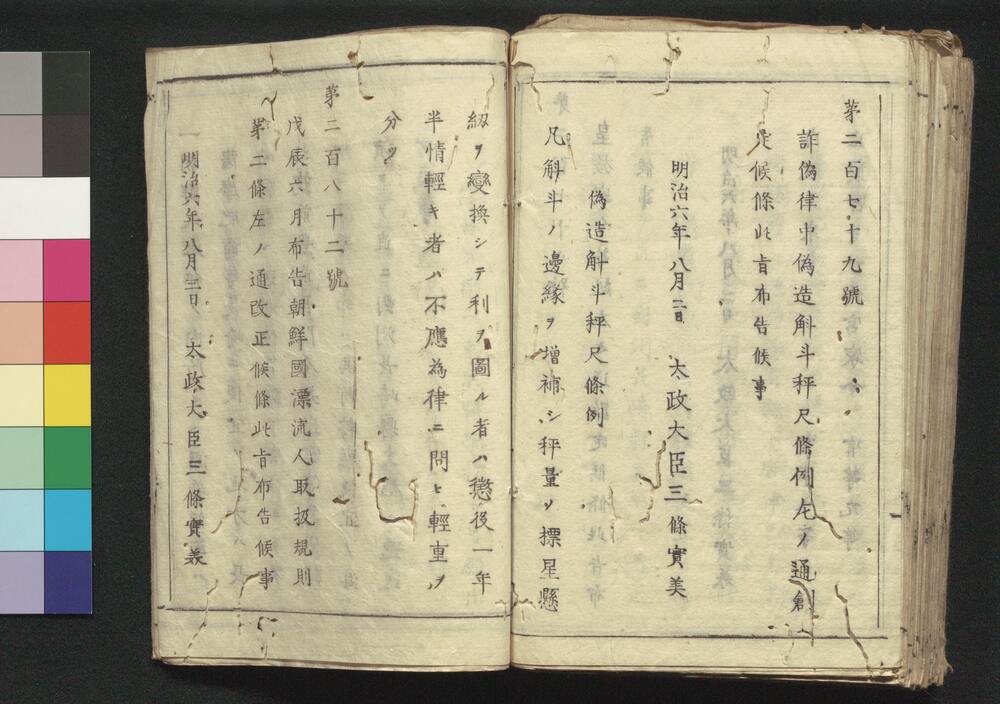 第二百七十九號
詐偽律中偽造斛斗秤尺條例左ノ通創
定候條此旨布告候事
明治六年八月二日　太政大臣三條實美
偽造斛斗秤尺條例
凡斛斗ノ邊緣ヲ增補シ秤量ノ摽星懸
紉ヲ變換シテ利ヲ圖ル者ハ懲役一年
半情輕キ者ハ不應為律ニ問ヒ輕重ヲ
分ツ
第二百八十二號
戊辰六月布告朝鮮國漂流人取扱規則
第二條左ノ通改正候條此旨布告候事
明治六年八月三日　太政大臣三條實美